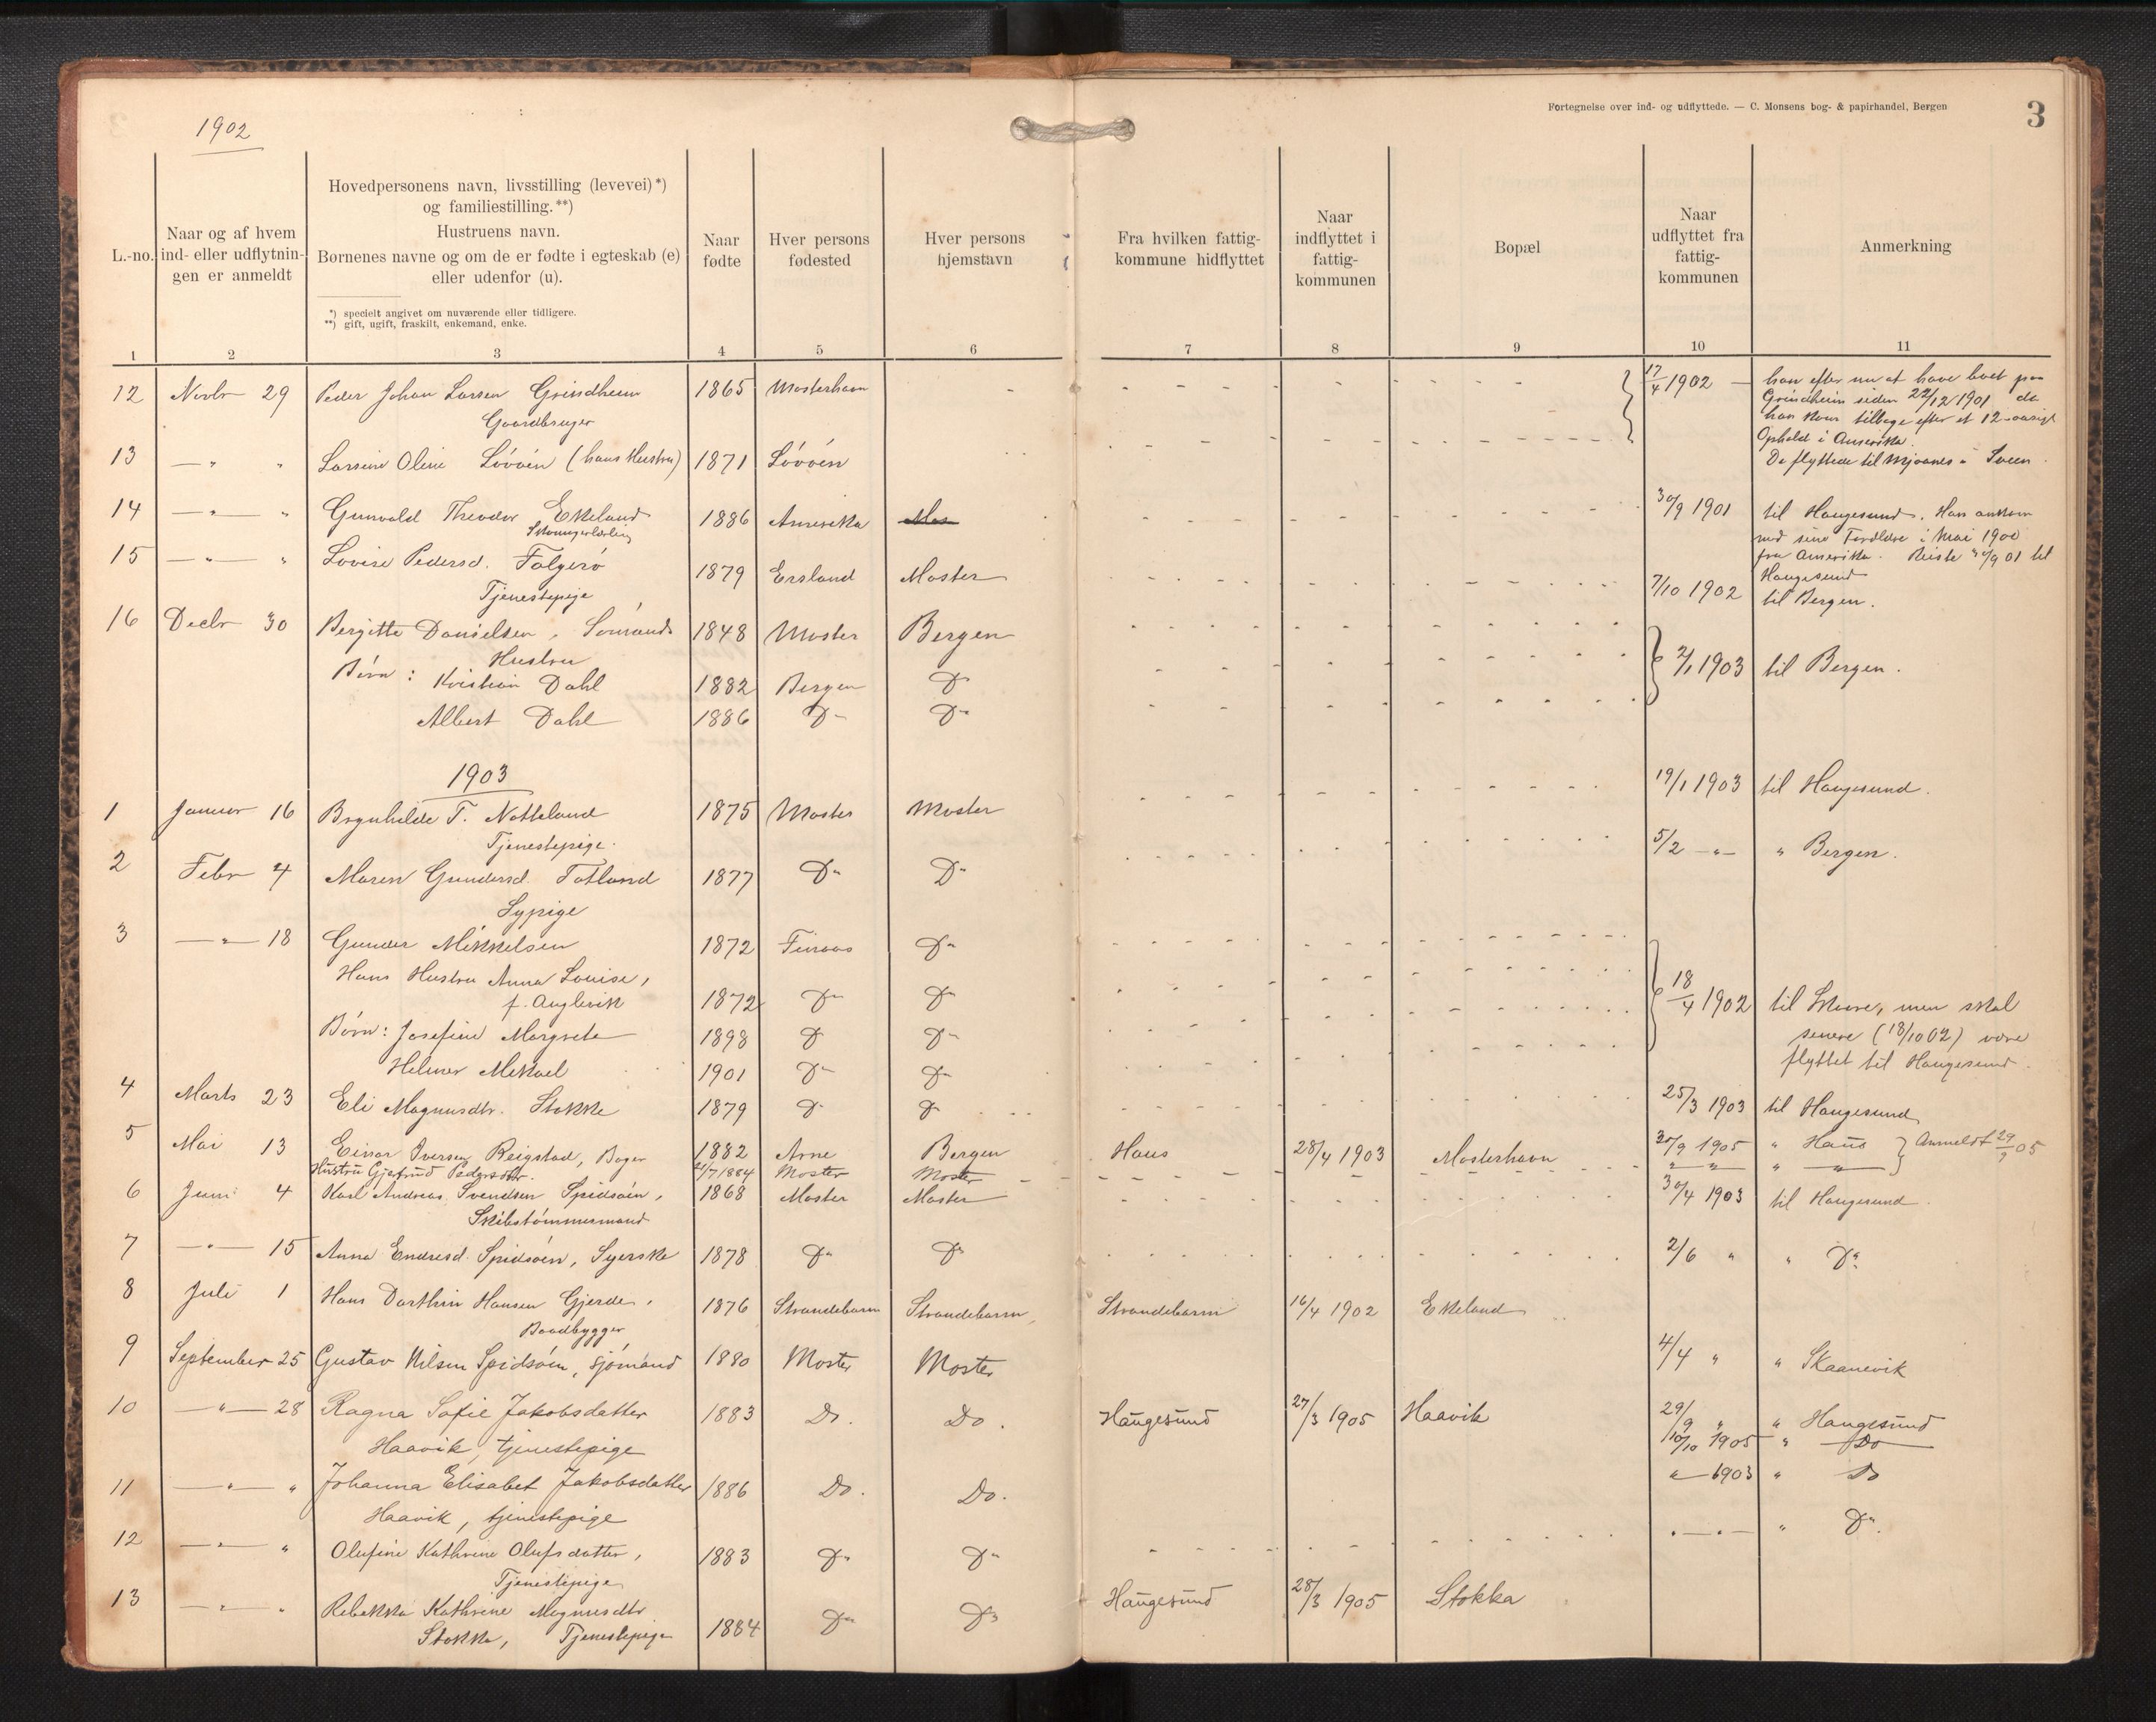 Fortegnelse over ind- og udflyttede. — C. Monsens bog- & papirhandel, Bergen
3
1902
L.-no.
Naar og af hvem ind- eller udflytnin- gen er anmeldt
Hovedpersonens navn, livsstilling (levevei) *)
og familiestilling. **)
Hustruens navn.
Børnenes navne og om de er fødte i egteskab (e)
eller udenfor (u).
*) specielt angivet om nuværende eller tidligere.
**) gift, ugift, fraskilt, enkemand, enke.
Naar fødte
Hver persons fødested
Hver persons hjemstavn
Fra hvilken fattig- kommune hidflyttet
Naar indflyttet i fattig- kommunen
Bopæl
Naar udflyttet fra fattig- kommunen
Anmerkning
1 2 3 4 5 6 7 8 9 10 11
12 Novbr 29 Peder Johan Larsen Grindheim 1865 Mosterhavn 17/4 1902 — han efter nu at have boet paa
Gaardbruger Grindheim siden 22/12 1901 da
han kom tilbage efter et 12-aarigt
Ophold i Amerika.
13 — " " Larsine Oline Lövöen (hans Hustru) 1871 Lövöen De flyttede til Mjoanes i Sveen
14 — " — " Gunvald Theodor Ekeland 1886 Amerika Mos 30/9 1901 til Haugesund. Han ankom
med sine Forældre i Mai 1900
fra Amerika. Reiste 30/9 01 til
Haugesund
15 — " — " Lovise Pedersd. Folgerö 1879 Ersland Moster 7/10 1902 til Bergen.
Tjenestepige
16 Decbr 30 Bergitte Danielsen, Sömands 1848 Moster Bergen 2/1 1903 til Bergen.
Hustru
Börn: Kristian Dahl 1882 Bergen Do
Albert Dahl 1886 Do Do
1903
1 Januar 16 Brynhilde T. Notteland 1875 Moster Moster 19/1 1903 til Haugesund.
Tjenestepige.
2 Febr 4 Maren Gundersd. Totland 1877 Do Do 5/2 — " — " Bergen.
Sypige
3 — " — 18 Gunder Mikkelsen 1872 Finaas Do 18/4 1902 til Skaare, men skal
Hans Hustru Anna Louise, senere (18/10 02) være
f. Anglevik 1872 Do Do flyttet til Haugesund.
Börn: Josefine Margrete 1898 Do Do
Helmer Mikael 1901 Do Do
4 Marts 23 Eli Magnusdtr. Stokke 1879 Do Do 25/3 1903 til Haugesund
5 Mai 13 Einar Iversen Reigstad, Bager 1882 Arne Bergen Haus 28/4 1903 Mosterhavn 30/9 1905 " Haus } Anmeldt 29/9 05
Hustru Gjertrud Pedersdtr. 21/7 1884 Moster Moster " " " — " —
6 Juni 4 Karl Andreas Svendsen Spidsöen, 1868 Moster Moster 30/4 1903 til Haugesund.
Skibstömmermand
7 — " — 15 Anna Endresd. Spidsöen, Syerske 1878 Do Do 2/6 " " Do
8 Juli 1 Hans Dorthin Hansen Gjerde, 1876 Strandebarm Strandebarm Strandebarm 16/4 1902 Ekeland
Baadbygger
9 September 25 Gustav Nilsen Spidsöen, sjömand 1880 Moster Moster 4/4 " " Skaanevik
10 — " — 28 Ragna Sofie Jakobsdatter 1883 Do. Do. Haugesund 27/3 1905 Haavik 29/9 " " Haugesund
Haavik, tjenestepige 10/10 1905 " Do
11 — " — " Johanna Elisabet Jakobsdatter 1886 Do. Do. " — 1903 " Do
Haavik, tjenestepige
12 — " — " Olufine Kathrine Olufsdatter, 1883 Do Do " — " — " Do.
Tjenestepige
13 — " — " Rebekka Kathrine Magnusdtr. 1884 Do Do Haugesund 28/3 1905 Stokka
Stokka, Tjenestepige